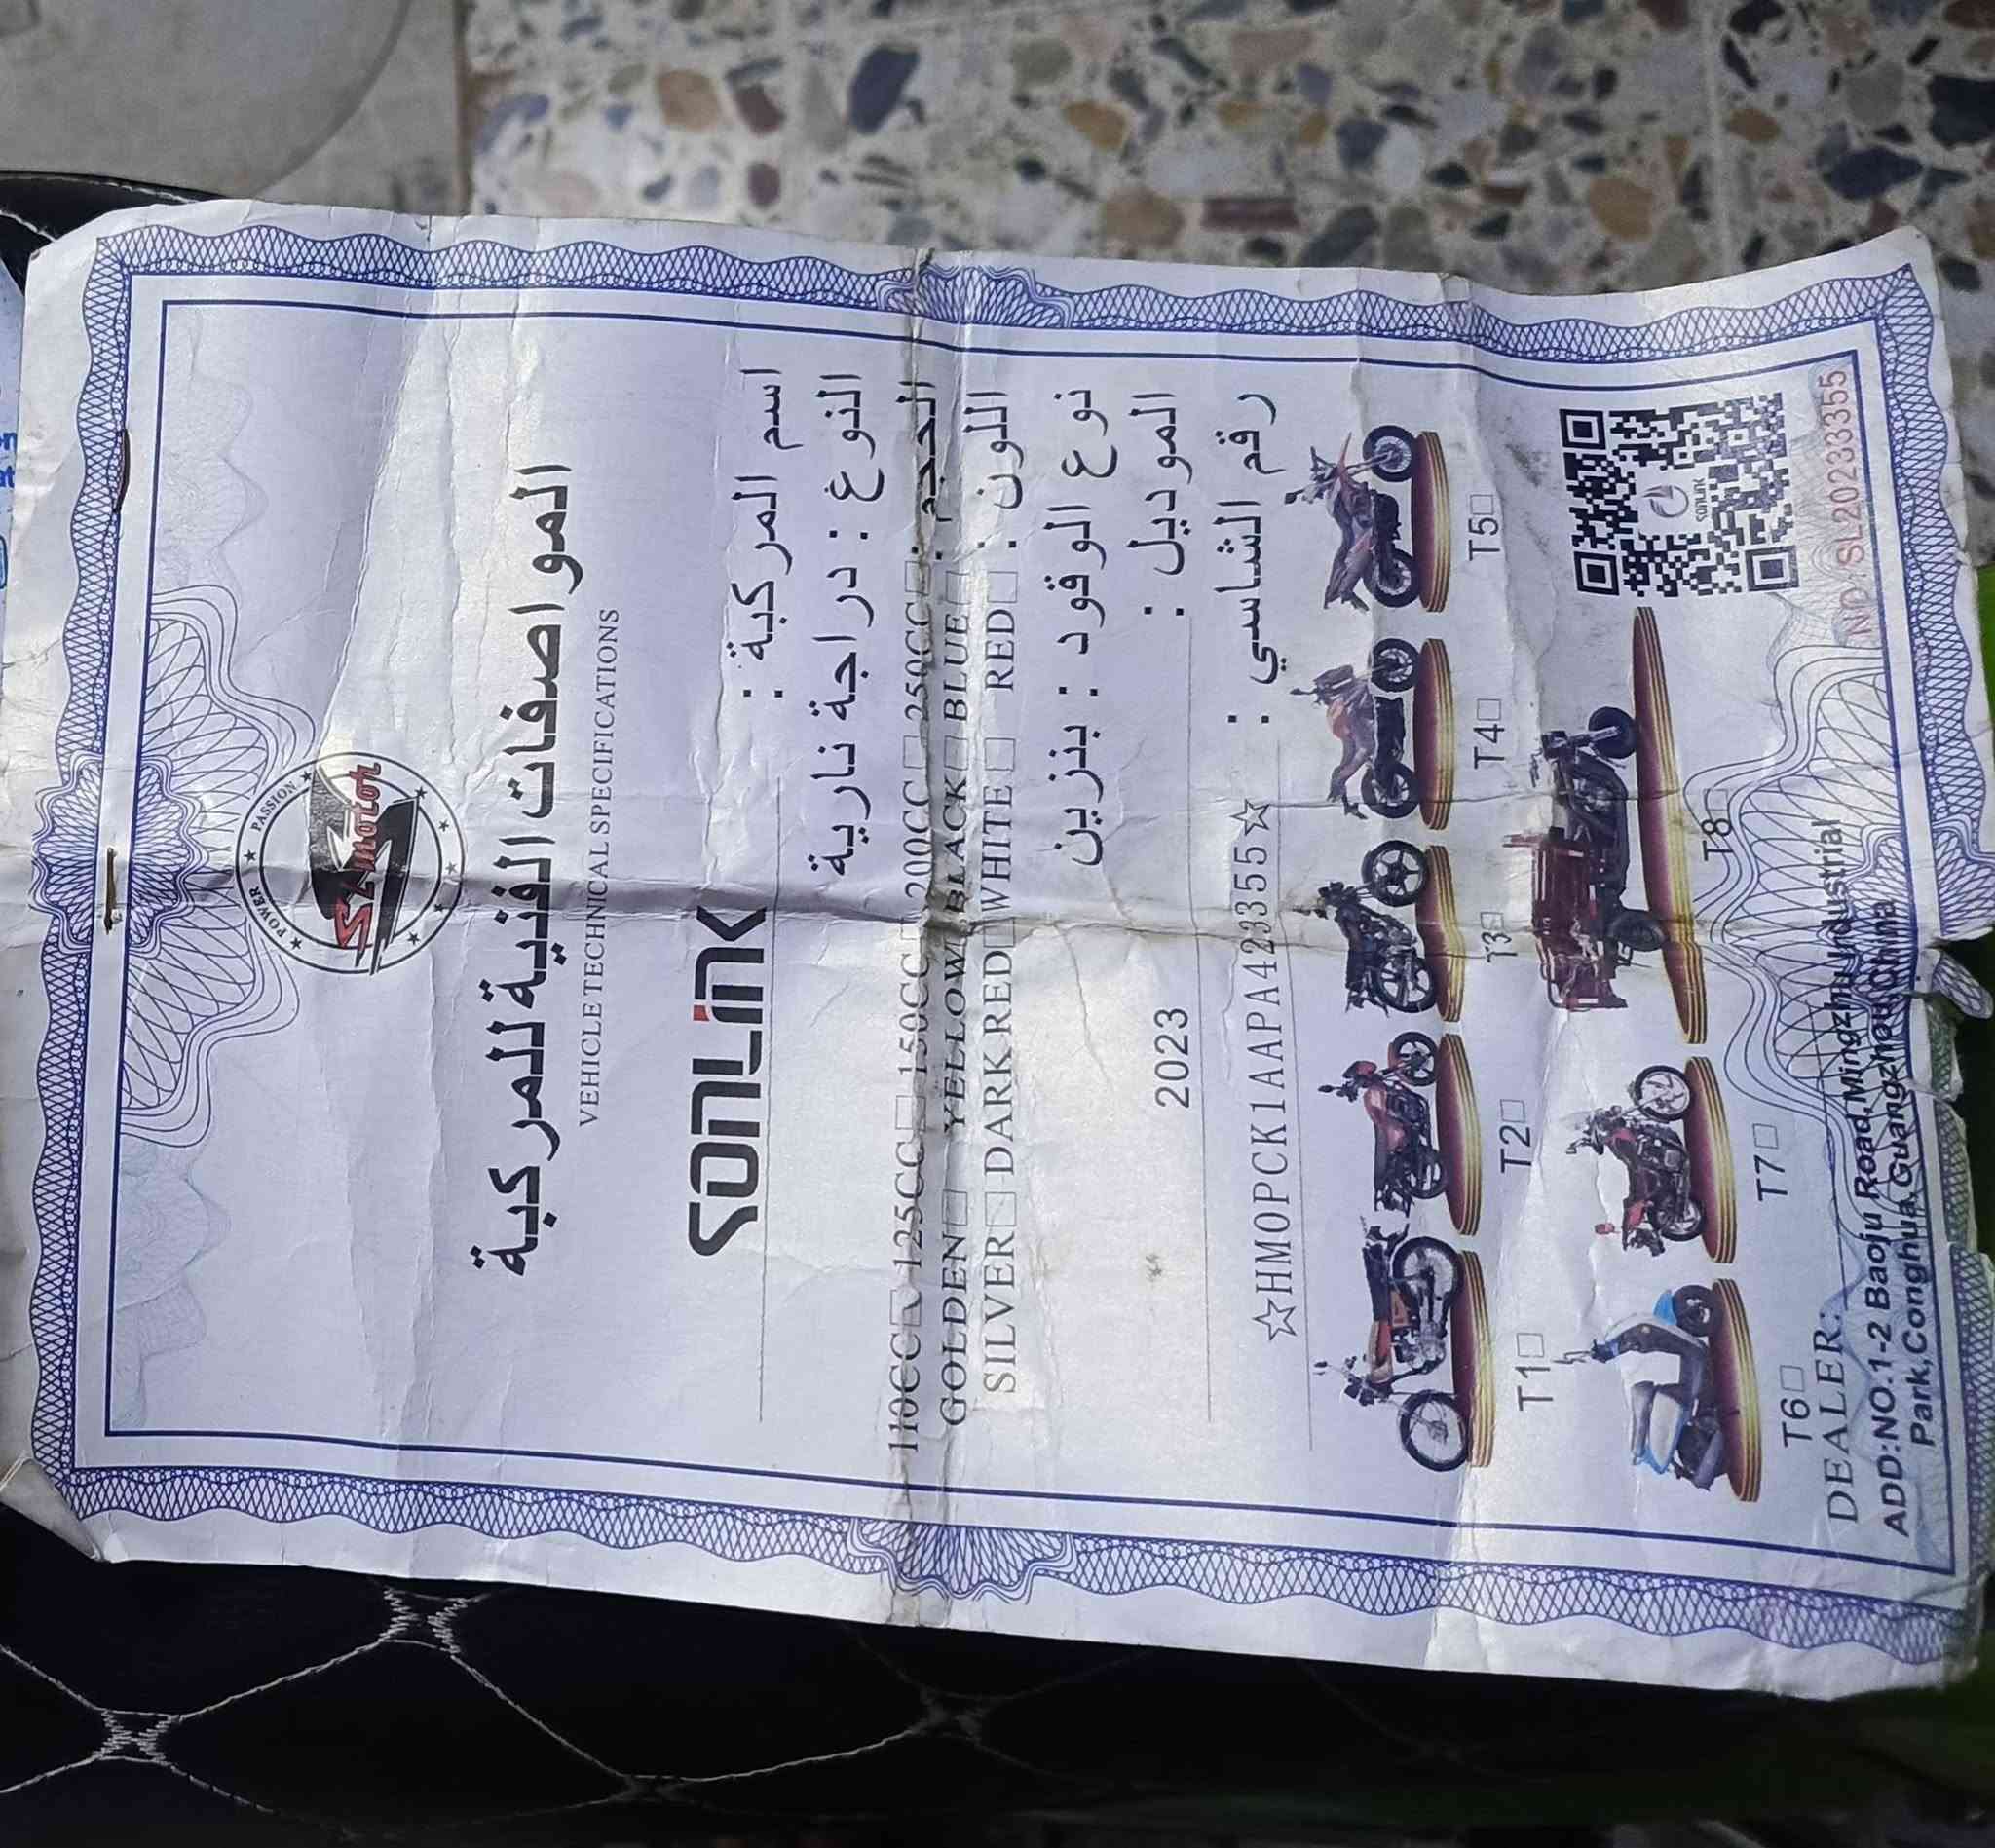 POWER PASSION
SL motor
المواصفات الفنية للمركبة
VEHICLE TECHNICAL SPECIFICATIONS
اسم المركبة : SONLINK
النوع : دراجة نارية
الحجم : 110CC□ 125CC□ 150CC□ 200CC□ 250CC□
GOLDEN□ YELLOW□ BLACK□ BLUE□ :
اللون : SILVER□ DARK RED□ WHITE□ RED□
نوع الوقود : بنزين
الموديل : 2023
رقم الشاسي : ☆HMOPCK1AAPA423355☆
T1□ T2□ T3□ T4□ T5□
T6□ T7□ T8□
SONLINK
DEALER:
NO:SL2023355
ADD:NO.1-2 Baoju Road,Mingzhu Industrial
Park,Conghua,Guangzhou,China